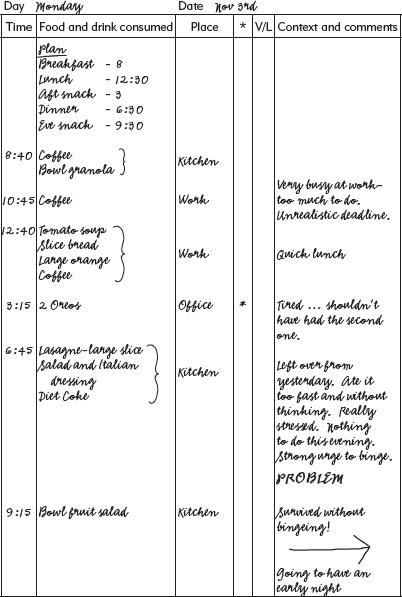 Day Monday Date Nov 3rd
Time Food and drink consumed Place * V/L Context and comments
Plan
Breakfast - 8
Lunch - 12:30
Aft snack - 3
Dinner - 6:30
Eve snack - 9:30
8:40 Coffee
Bowl granola
Kitchen
10:45 Coffee Work
Very busy at work-
too much to do.
Unrealistic deadline.
12:40 Tomato soup
Slice bread
Large orange
Coffee
Work Quick lunch
3:15 2 Oreos Office * Tired ... shouldn't
have had the second
one.
6:45 Lasagne-large slice
Salad and Italian
dressing
Diet Coke
Kitchen
Left over from
yesterday. Ate it
too fast and without
thinking. Really
stressed. Nothing
to do this evening.
Strong urge to binge.
PROBLEM
9:15 Bowl fruit salad Kitchen Survived without
bingeing!
Going to have an
early night